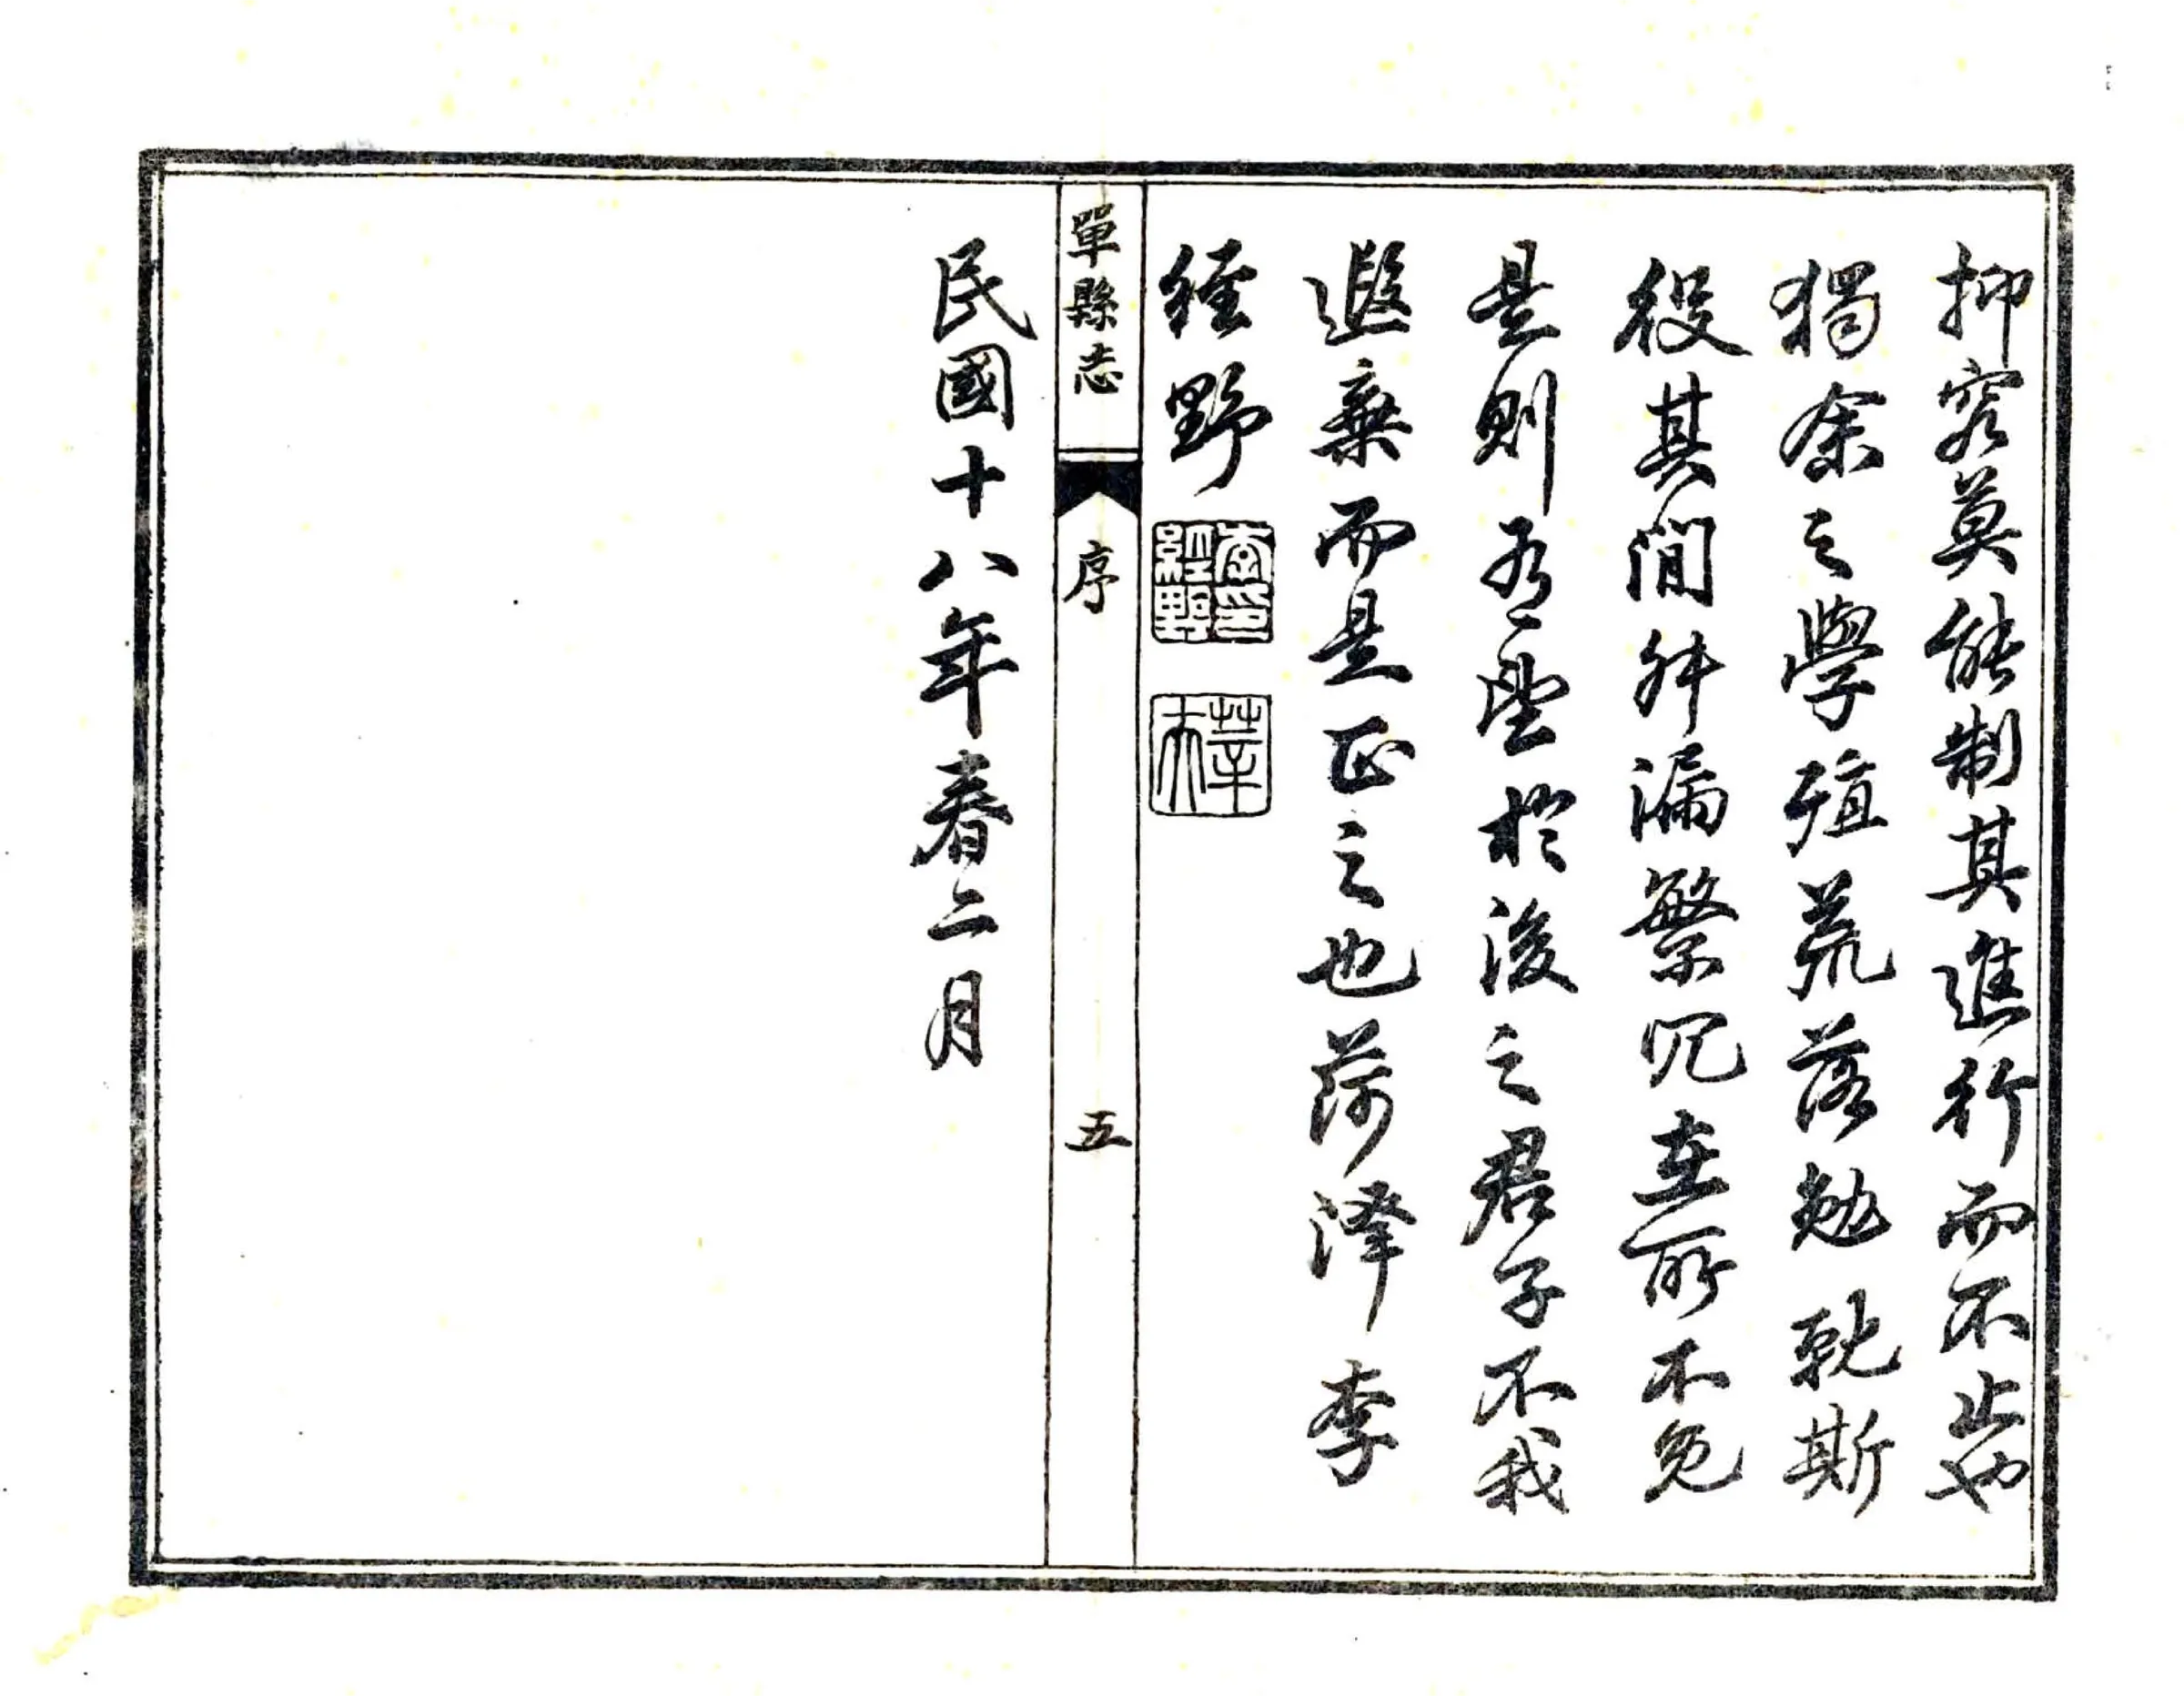 抑究莫能制其進行而不止也
獨余之學殖荒落勉就斯
役其間舛漏繁冗在所不免
是則有望於後之君子不我
遐棄而是正之也菏澤李
經野
李印經野
莘夫
單縣志
序
五
民國十八年春二月